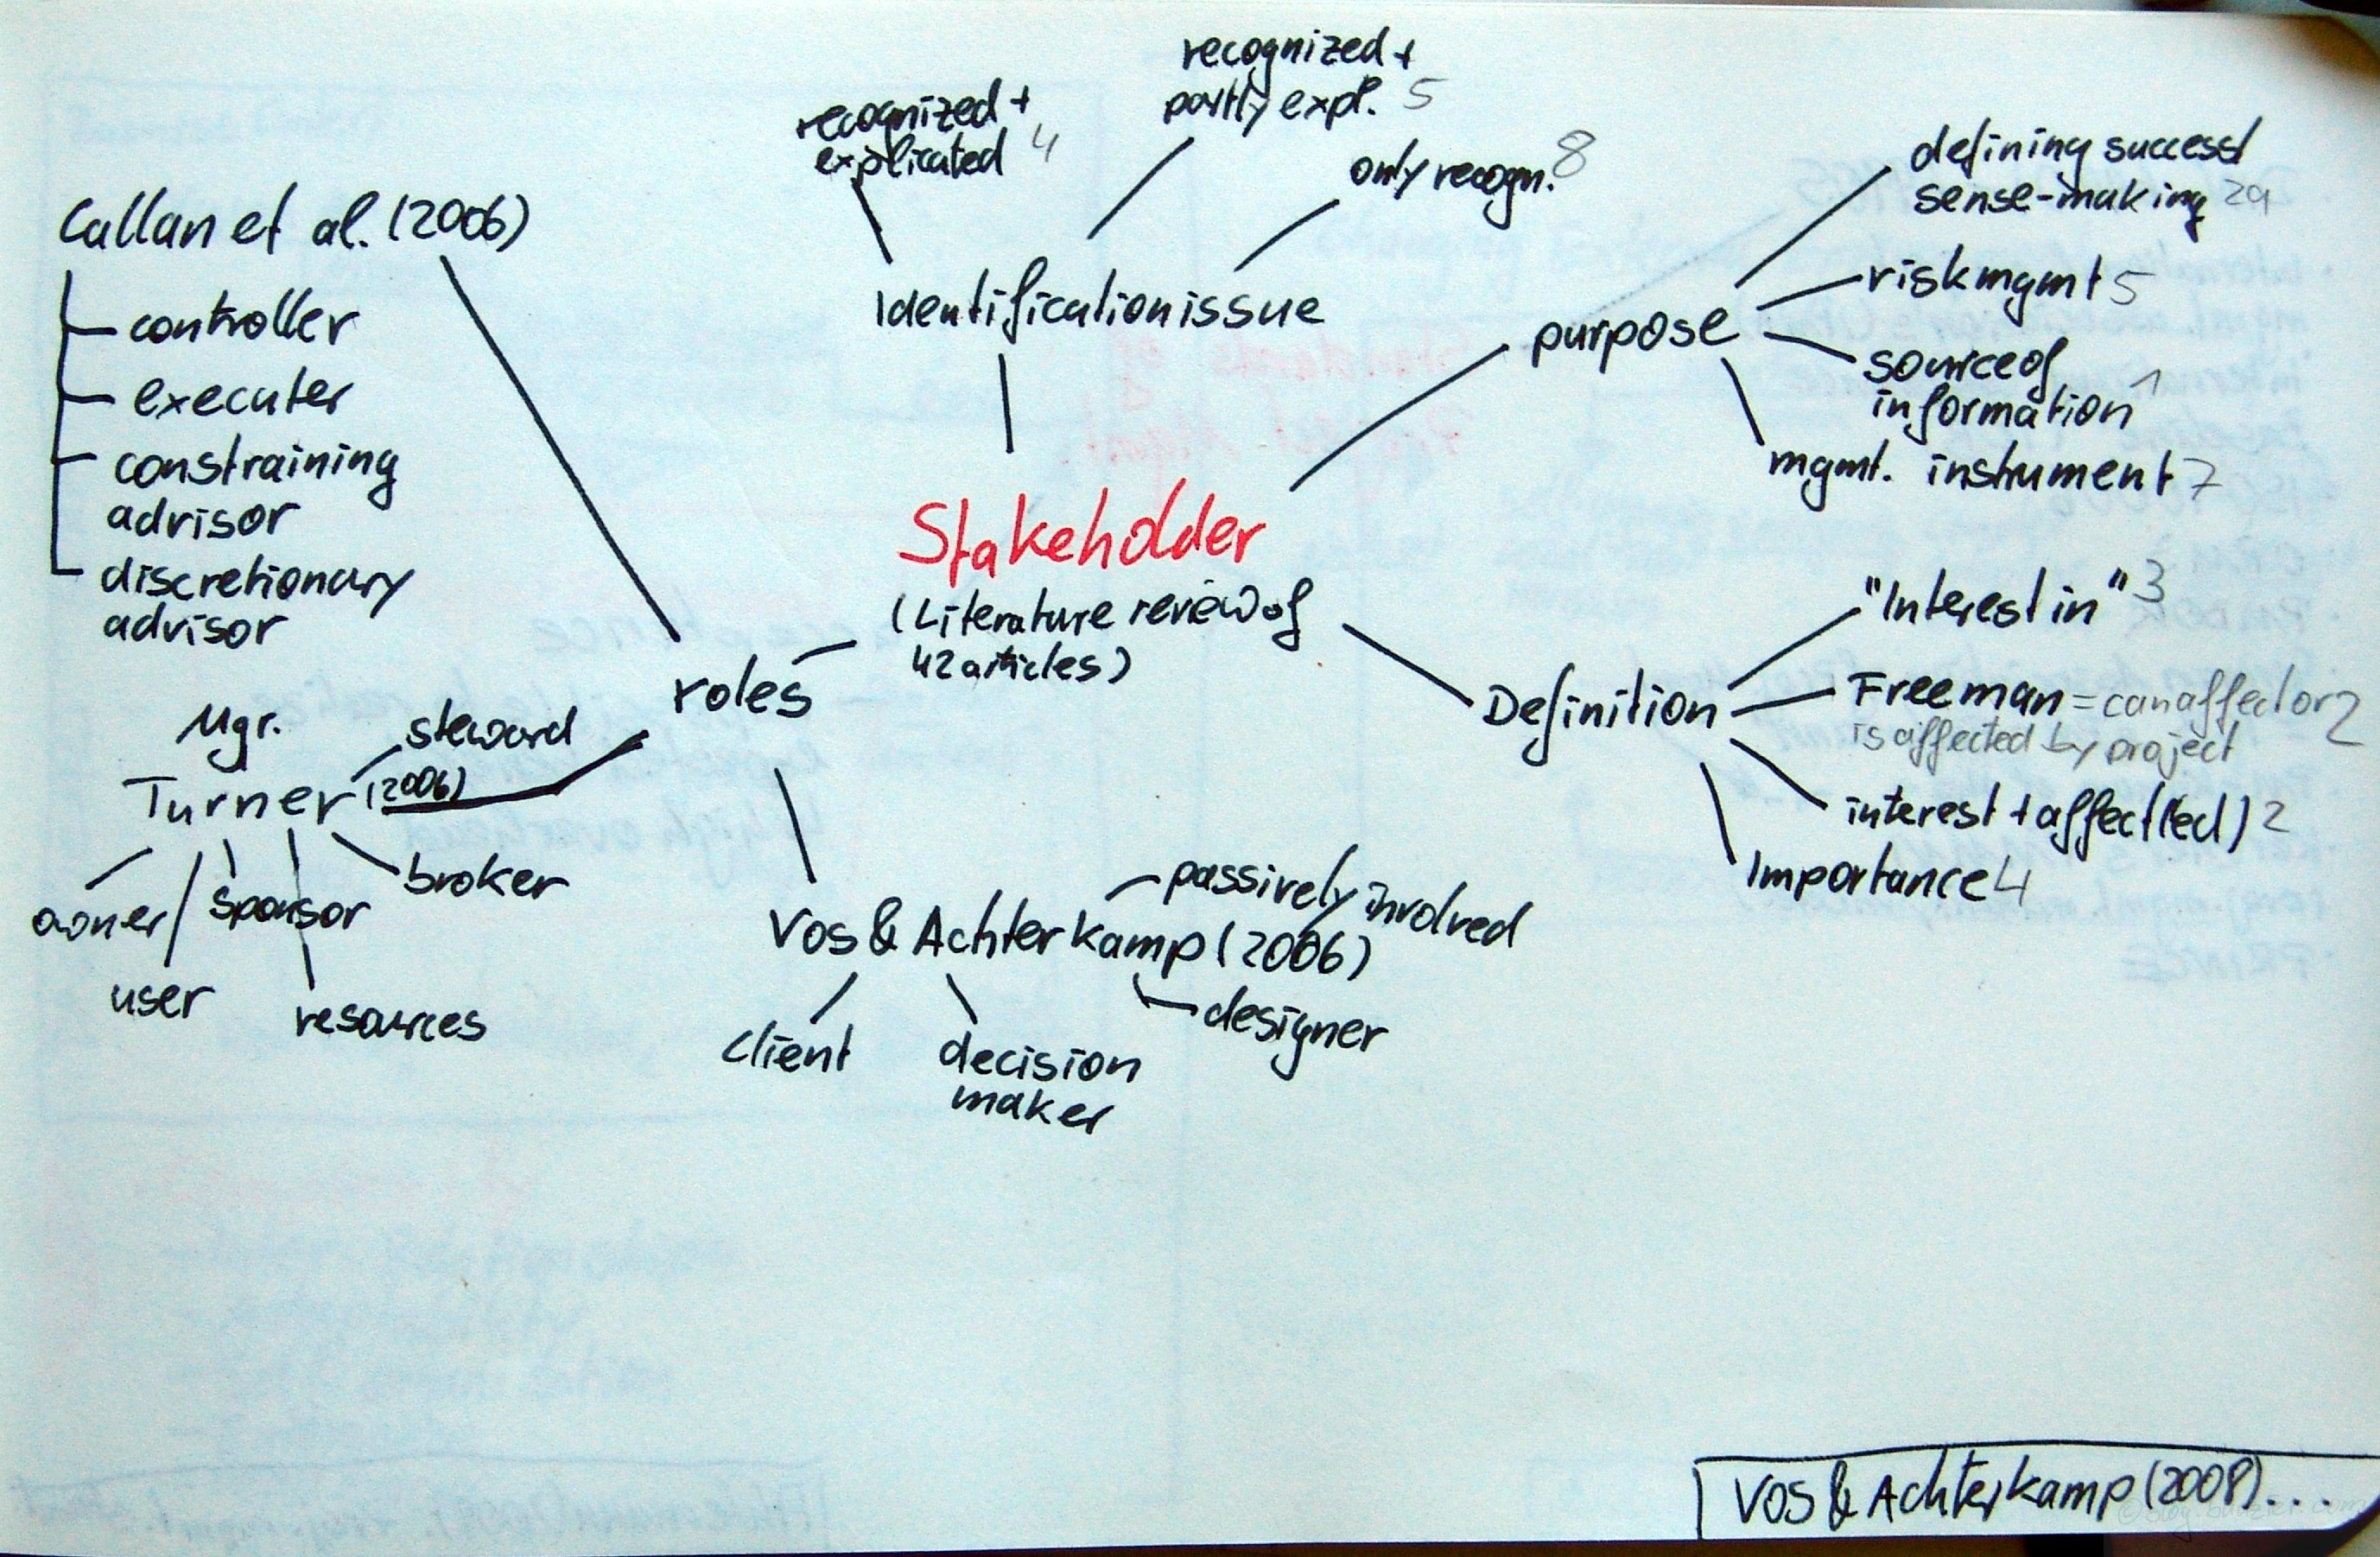 recognized +
partly expl. 5
recognized +
explicated 4
only recogn. 8
defining success/
sense-making 29
Callan et al. (2006)
controller
executer
constraining
advisor
discretionary
advisor
Identification issue
purpose
risk mgmt 5
source of
information 1
mgmt. instrument 7
Stakeholder
(Literature review of
42 articles)
roles
Definition
"Interest in" 3
Freeman = can affect or 2
is affected by project
interest + affect(ed) 2
Importance 4
Mgr.
steward
Turner (2006)
broker
owner
sponsor
user
resources
passively involved
Vos & Achterkamp (2006)
designer
client
decision
maker
Vos & Achterkamp (2008)...